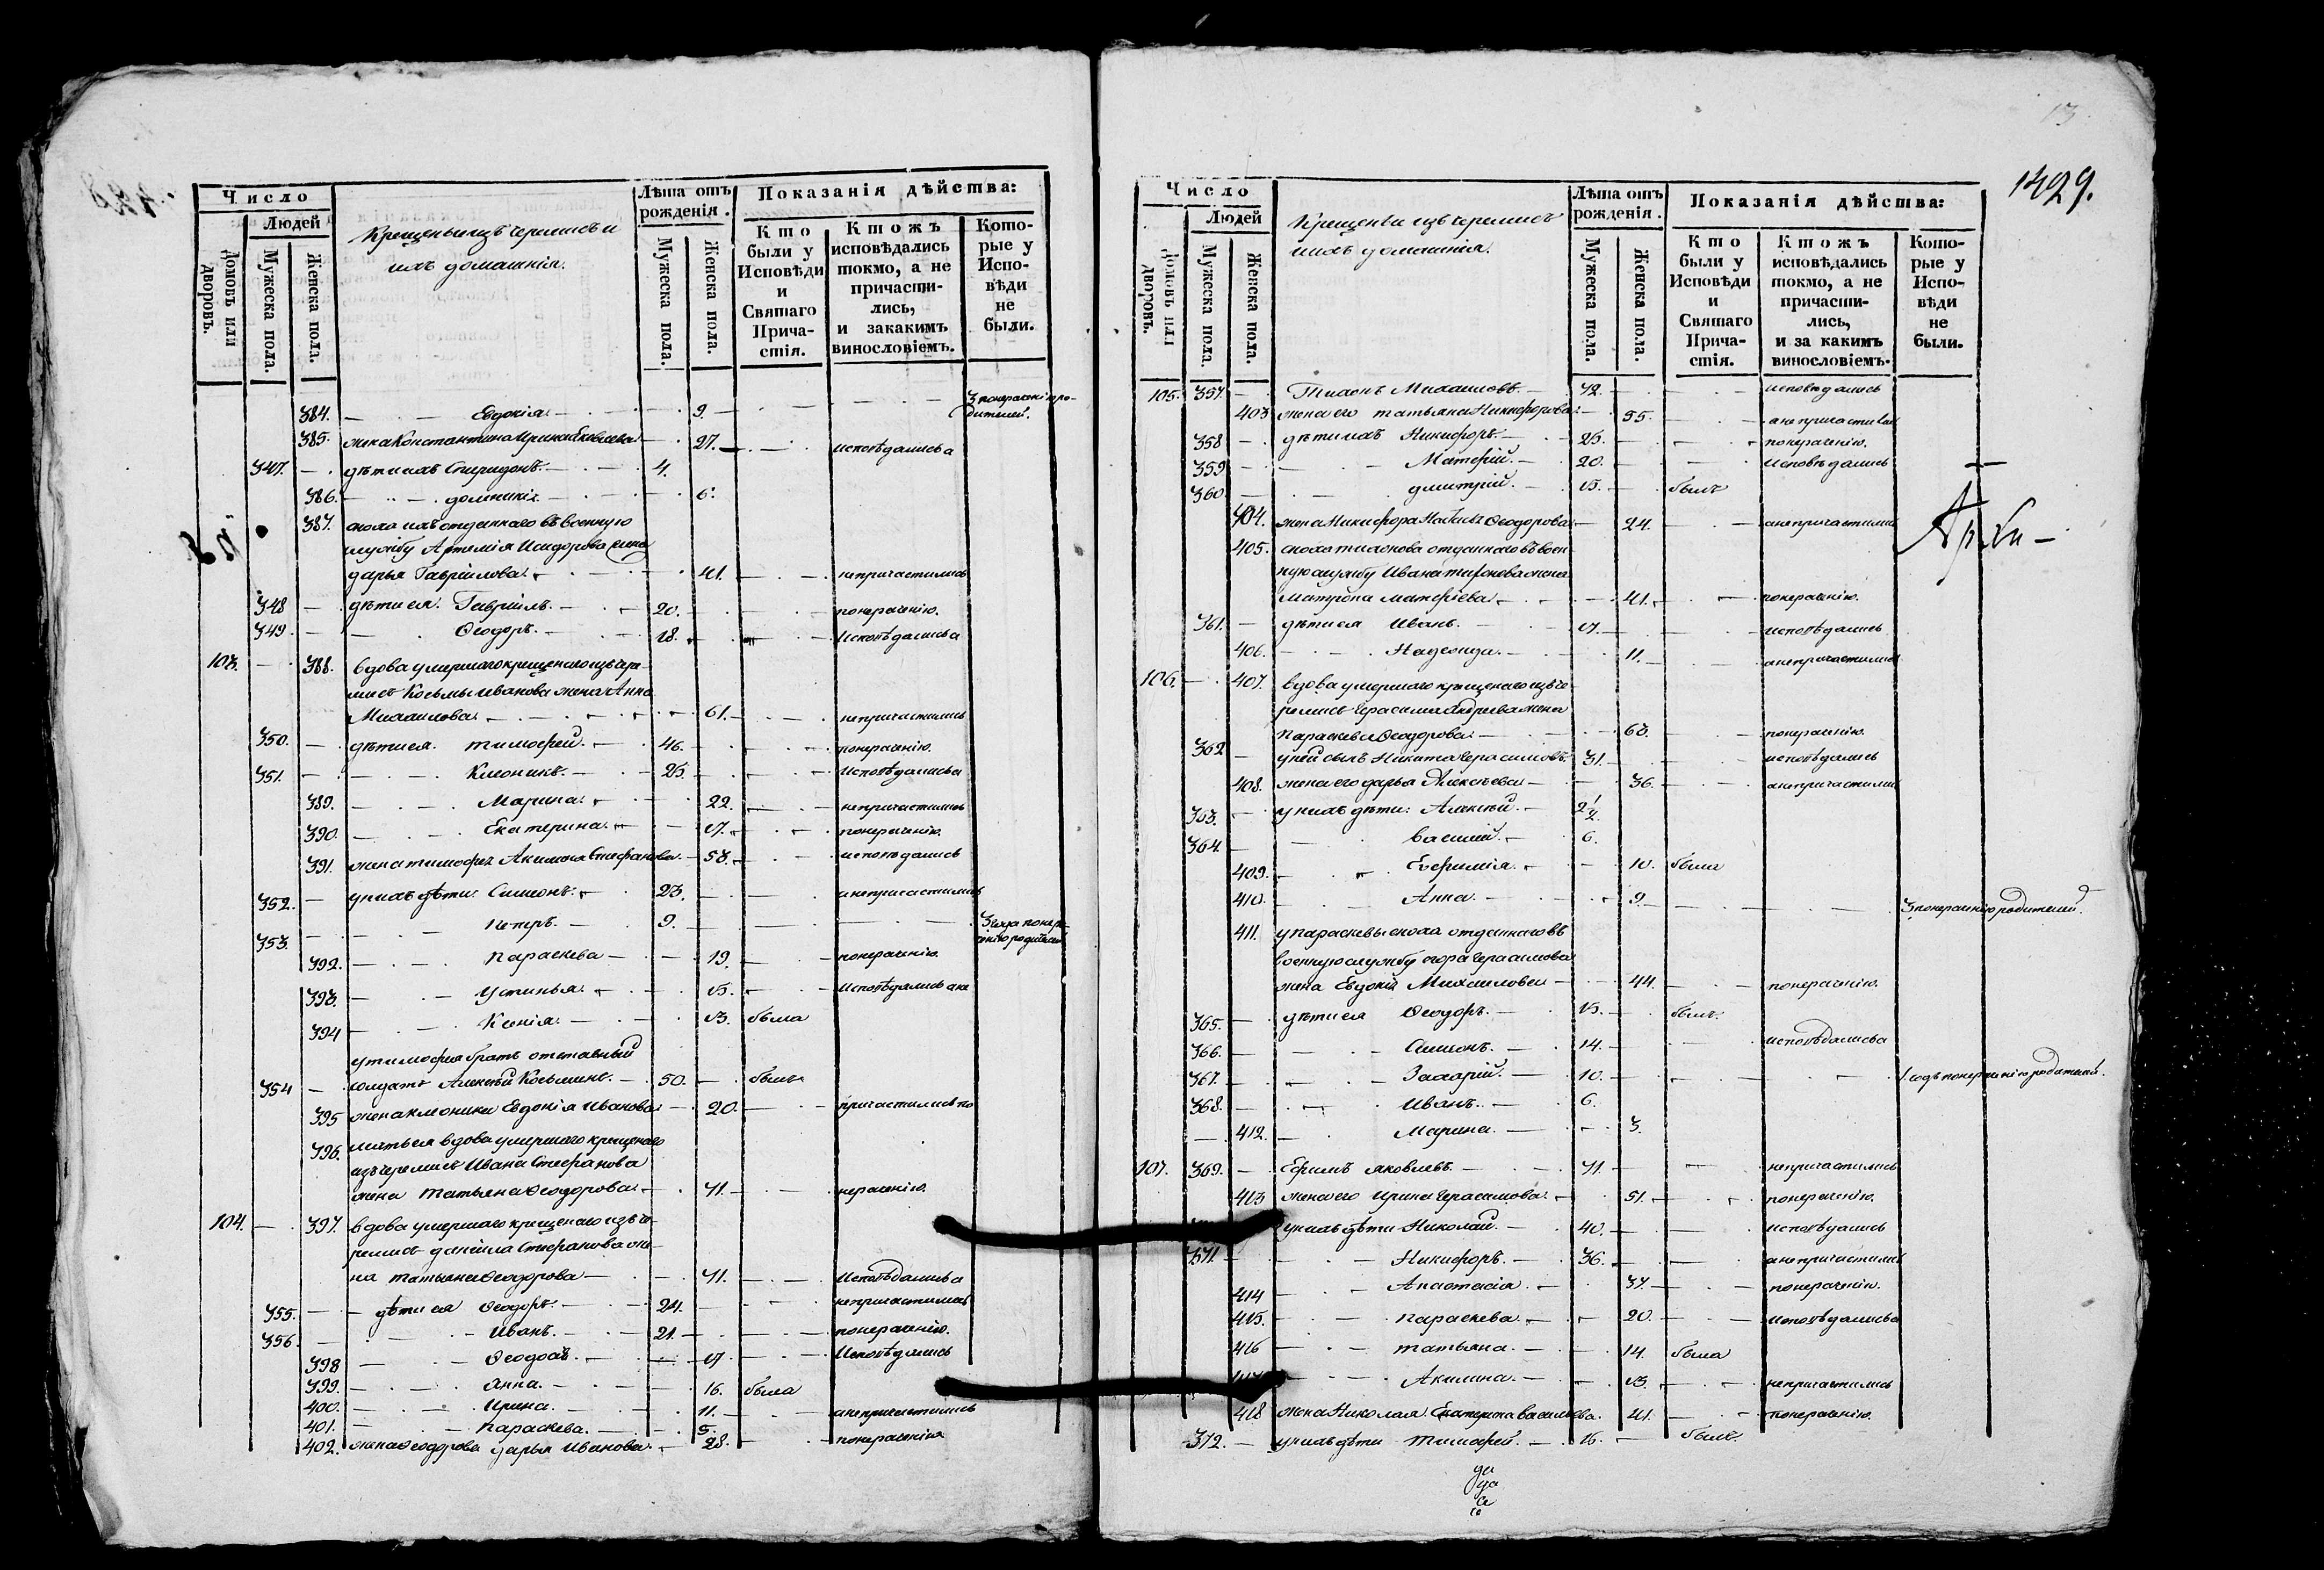 13
1429.
Число
Людей
Домовъ или дворовъ.
Мужеска пола.
Женска пола.
Крещеныи изъ черемисъ и
ихъ домашнія.
Лѣта отъ рожденія.
Мужеска пола.
Женска пола.
Показанія дѣйства:
Кто были у Исповѣди и Святаго Причастія.
Ктожъ исповѣдались токмо, а не причастились, и закакимъ винословіемъ.
Которые у Исповѣди не были.
384. Евдокія. 9. 3 понерачнію родителей.
385. жена Константина Ирина Яковлева 27. исповѣдались а
347. дѣти ихъ Спиридонъ. 4.
386. домникія. 6.
387. сноха ихъ отданнаго въ военную
службу Артемія Исидорова жена
дарья Гавріилова. 41. непричастились
348 дѣти ея. Гавріилъ. 20. понерачнію.
349. Ѳеодоръ. 18. исповѣдались а
103. 388. вдова умершаго крещенаго изъ чере-
мисъ Косьмы Иванова жена Анна
Михаилова. 61. непричастились
350. дѣти ея. тимофей. 46. понерачнію.
351. Клеоникъ. 25. исповѣдались а
389. Марина. 22. непричастились
390. Екатерина. 17. понерачнію.
391. жена тимофея Акилина Стефанова. 53. исповѣдались
352. у нихъ дѣти. Симеонъ. 23. а непричастились
353. петръ. 9. понерачнію родителей
392. параскева 19. понерачнію.
393. Устинья. 15. исповѣдались а не
394 Ксенія. 13. была
у тимофея братъ отставный
354 солдатъ Алексѣй Косьминъ. 50. былъ
395 жена клеоника Евдокія Иванова 20. причастились по
396. мать ея вдова умершаго крещенаго
изъ черемисъ Ивана Стефанова
жена татьяна Ѳеодорова. 71. нерачнію.
104. 397. вдова умершаго крещенаго изъ че-
ремисъ даніила Стефанова же-
на татьяна Ѳеодорова 71. исповѣдались а
355. дѣти ея Ѳеодоръ. 24. непричастились
356. Иванъ. 21. понерачнію.
398 17 исповѣдались
399. Анна. 16. была
400. Ирина. 11. а непричастились
401. параскева. 5.
402. жена Ѳеодора дарья Иванова. 28. понерачнію
Число
Людей
Домовъ или дворовъ.
Мужеска пола
Женска пола.
Крещеныи изъ черемисъ
и ихъ домашнія.
Лѣта отъ рожденія.
Мужеска пола.
Женска пола.
Показанія дѣйства:
Кто были у Исповѣди и Святаго Причастія.
Ктожъ исповѣдались токмо, а не причастились, и за какимъ винословіемъ.
Которые у Исповѣди не были.
105. 357. Тихонъ Михаиловъ. 72. исповѣдались
403 жена его татьяна Никифорова 55. а непричастились
358 дѣти ихъ Никифоръ. 25. понерачнію.
359 Матѳей. 20. исповѣдались
360 дмитрій. 15. былъ
404. жена Никифора Ѳеодорова 24. а непричастились
405. сноха тихонова отданнаго въ воен-
ную службу Ивана тихонова жена
матрона матѳіева 41. понерачнію.
361. дѣти ея Иванъ. 17. исповѣдались
406. Надежда. 11. а непричастились
106. 407. вдова умершаго крещенаго изъ че-
ремисъ Герасима Андреева жена
параскева Ѳеодорова. 63. понерачнію.
362 у ней сынъ Никита Герасимовъ. 31. исповѣдались
408. жена его дарья Алексѣева 36. а непричастились
363. у нихъ дѣти: Алексѣй. 2 1/2.
364. Василій. 6.
409. Евфимія. 10. была
410. Анна. 9. 3 понерачнію родителей.
411. у параскевы сноха отданнаго въ
военную службу егора Герасимова
жена Евдокія Михаилова 44. понерачнію.
365. дѣти ея Ѳеодоръ. 15. былъ.
366. Симеонъ. 14. исповѣдались а
367. Захарій. 10. понерачнію родителей.
368. Иванъ. 6.
412. Марина. 3.
107. 369. Ефимъ яковлевъ. 71. непричастились
413 жена его Ирина Герасимова. 51. понерачнію.
у нихъ дѣти Николай. 40. исповѣдались
371. Никифоръ. 36. а непричастились
414 Анастасія. 37. понерачнію.
415. параскева. 20. исповѣдались а
416 татьяна. 14. была
Акилина. 13. непричастились
418 жена Николая Екатерина Васильева. 41. понерачнію.
372. у нихъ дѣти тимофей. 16. былъ.